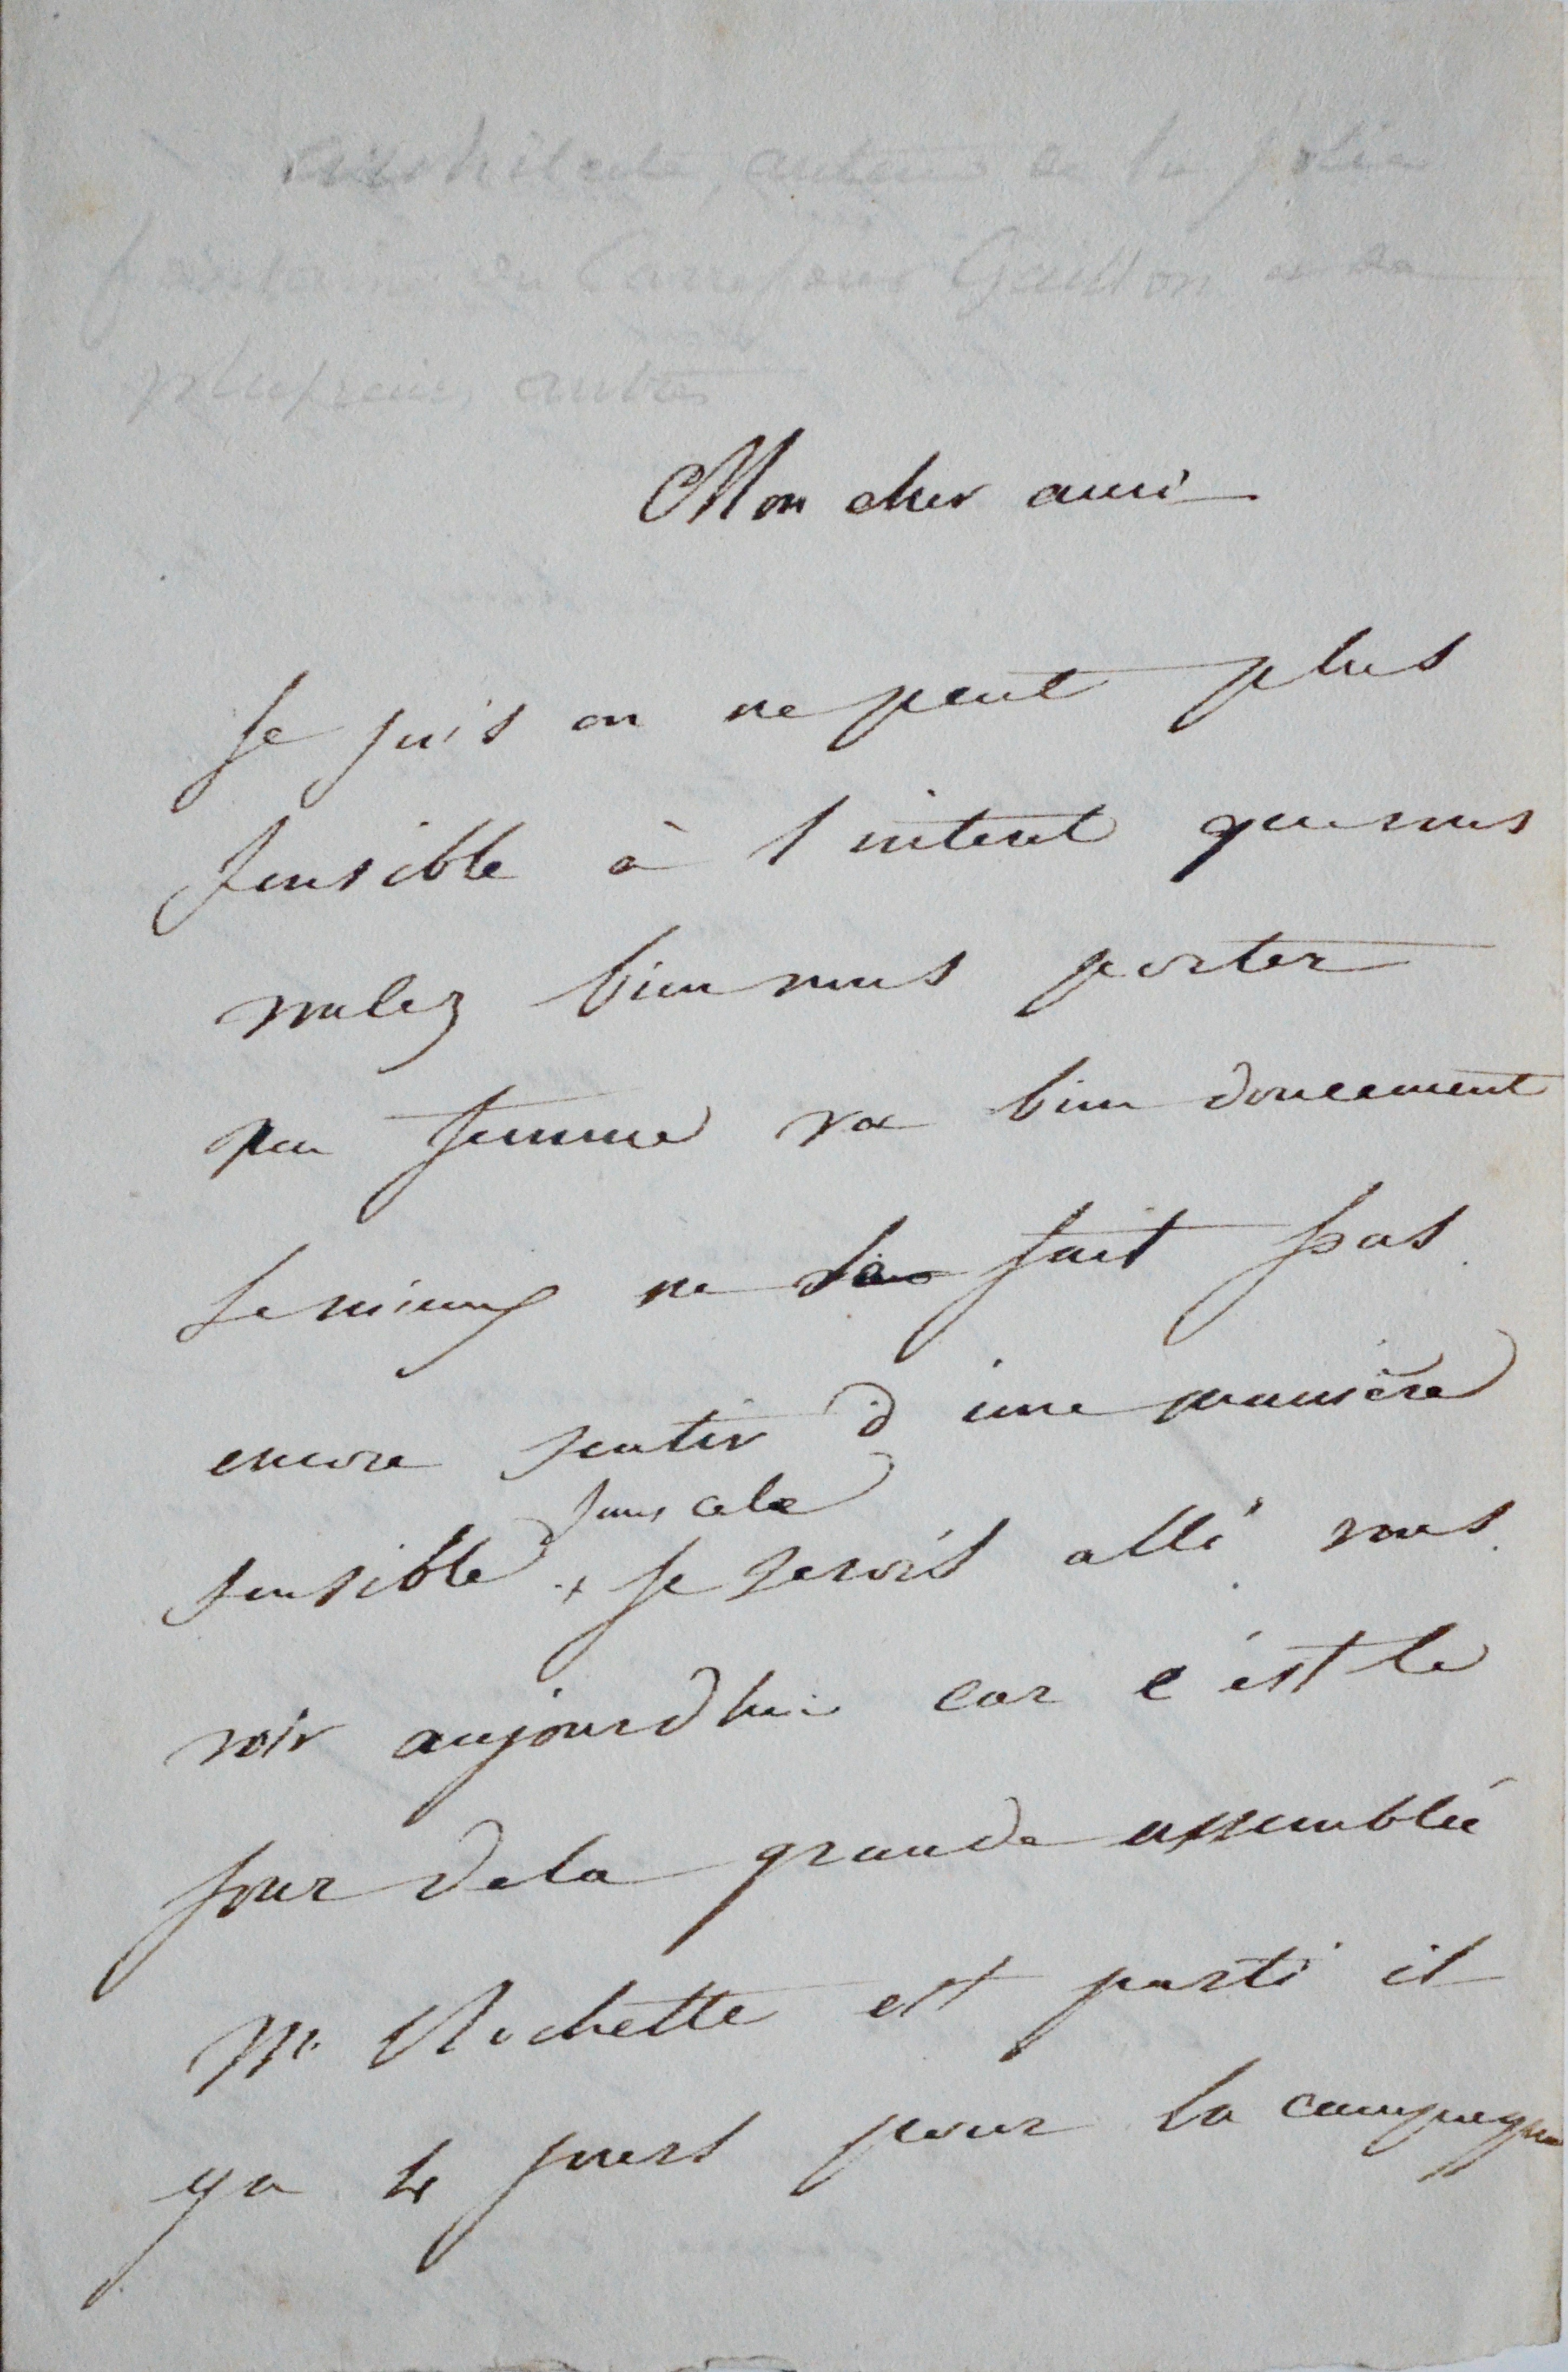 architecte, auteur de la jolie
fontaine du Carrefour Gaillon et de
plusieurs autres
Mon cher ami
Je suis on ne peut plus
sensible à l'interet que vous
voulez bien nous porter
ma femme va bien doucement
le mieux ne se fait pas
encore sentir d'une manière
sans cela
sensible + je serois allé vous
voir aujourdhui car c'est le
jour de la grande assemblée
Mr Rochette est parti il
ya 4 jours pour la campagne